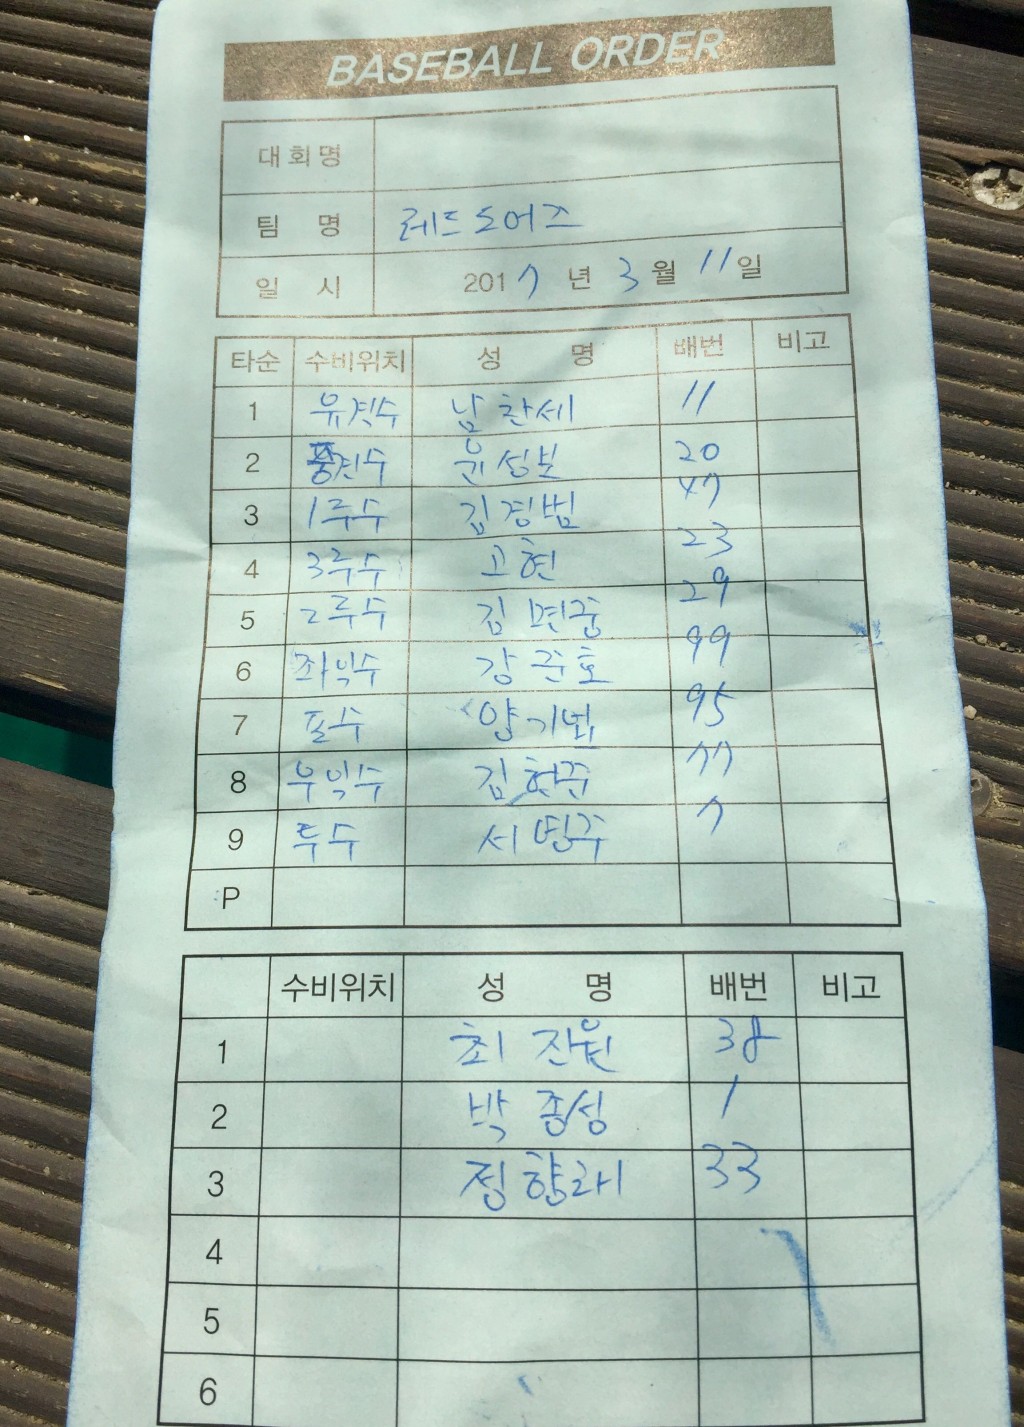 BASEBALL ORDER
대회명
팀 명 레드도어즈
일 시 2017 년 3 월 11 일
타순 수비위치 성 명 배번 비고
1 유격수 남찬세 11
2 중견수 윤성보 20
3 1루수 김경범 47
4 3루수 고현 23
5 2루수 김면중 29
6 좌익수 강준호 99
7 포수 양기범 95
8 우익수 김현준 77
9 투수 서민주 7
P
수비위치 성 명 배번 비고
1 최진원 38
2 박종성 1
3 정향래 33
4
5
6